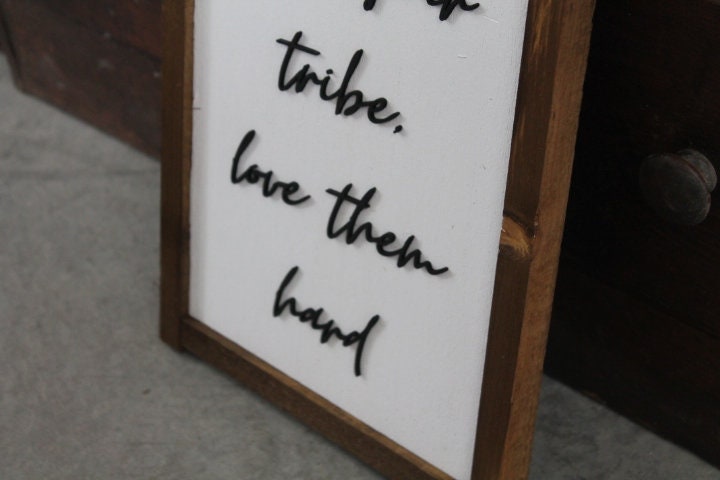 tribe,
love them
hard